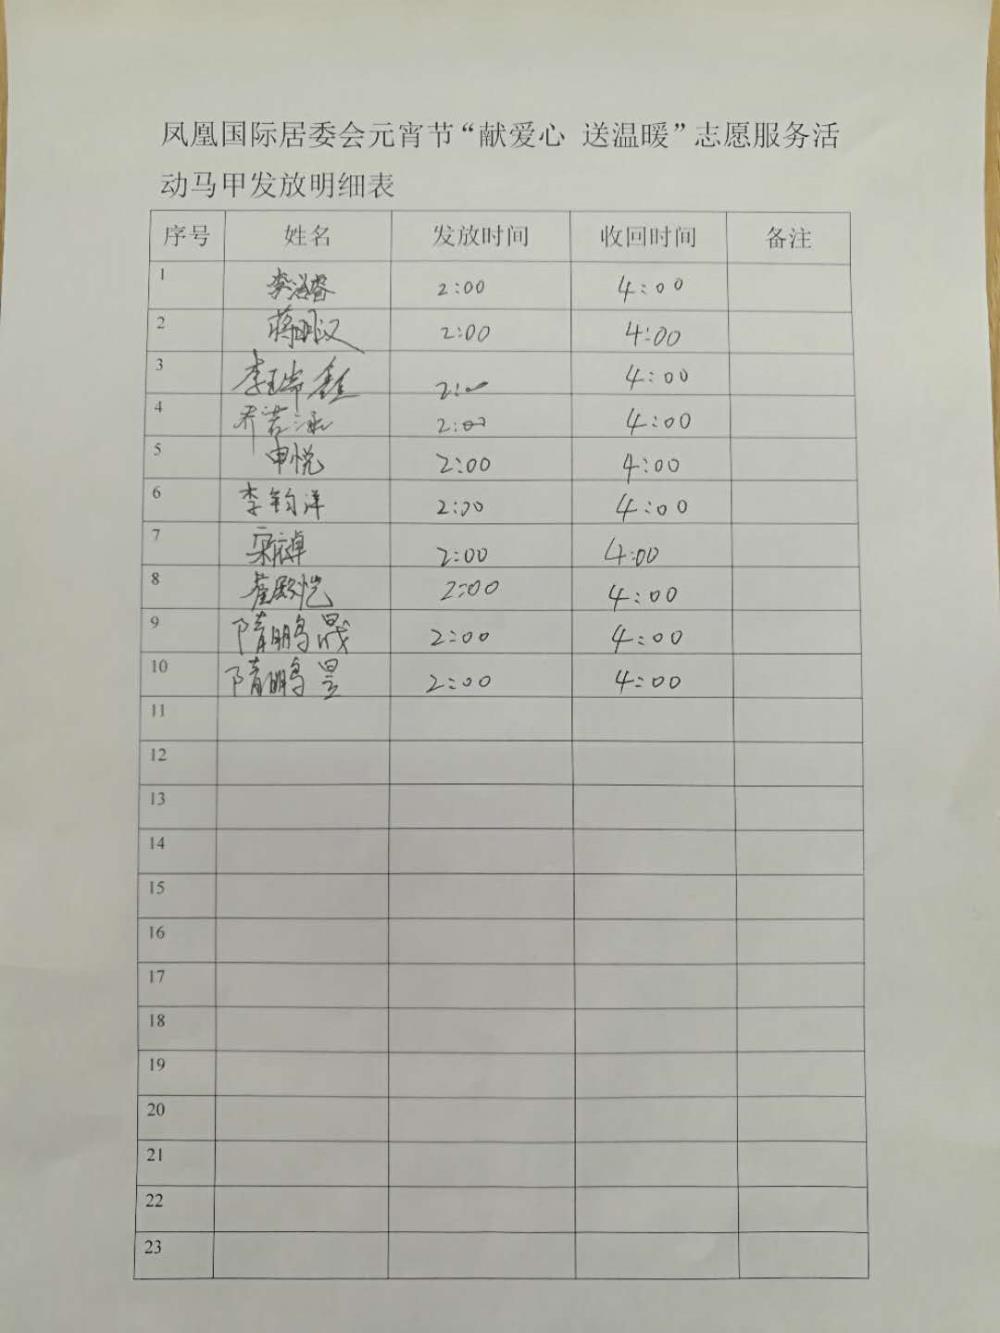 凤凰国际居委会元宵节“献爱心 送温暖”志愿服务活
动马甲发放明细表
序号 姓名 发放时间 收回时间 备注
1 李浴睿 2:00 4:00
2 蒋明汉 2:00 4:00
3 李瑞鑫 2:00 4:00
4 乔若涵 2:00 4:00
5 申悦 2:00 4:00
6 李钧洋 2:00 4:00
7 2:00 4:00
8 董殿恺 2:00 4:00
9 隋鹏晟 2:00 4:00
10 隋鹏昱 2:00 4:00
11
12
13
14
15
16
17
18
19
20
21
22
23